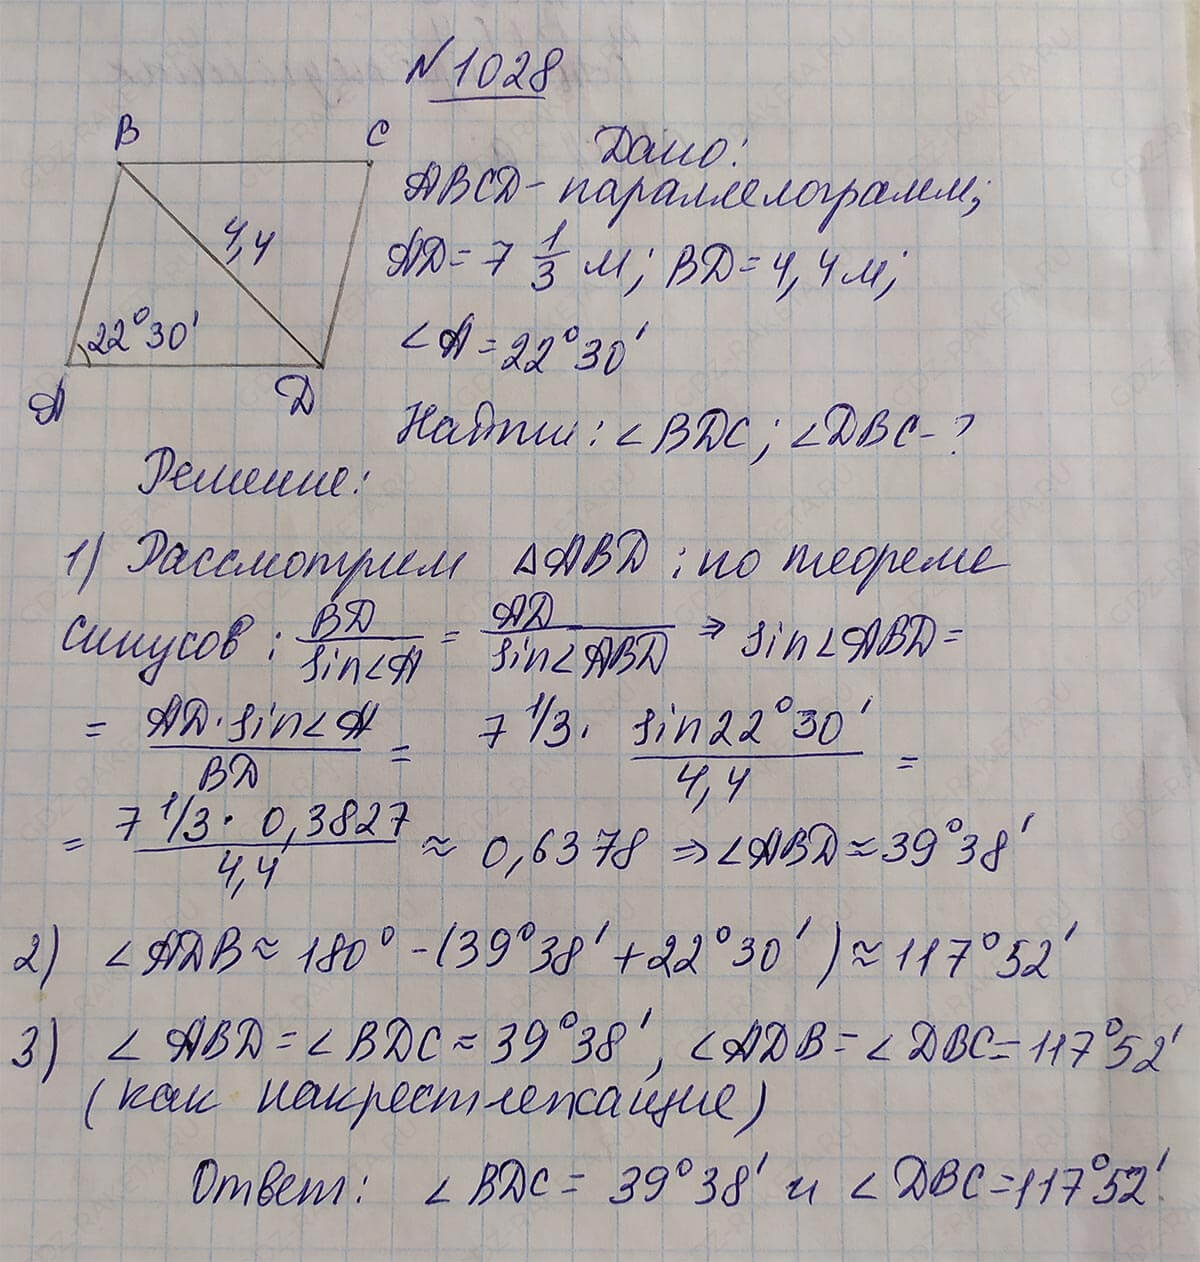 №1028
B C
4,4
22°30'
A D
Дано:
ABCD - параллелограмм;
AD = 7 1/3 м; BD = 4,4 м;
∠A = 22°30'
Найти: ∠BDC; ∠DBC - ?
Решение:
1) Рассмотрим △ABD: по теореме
синусов: BD/sin∠A = AD/sin∠ABD ⇒ sin∠ABD =
= AD·sin∠A/BD = 7 1/3 · sin22°30'/4,4 =
= 7 1/3 · 0,3827/4,4 ≈ 0,6378 ⇒ ∠ABD ≈ 39°38'
2) ∠ADB ≈ 180° - (39°38' + 22°30') ≈ 117°52'
3) ∠ABD = ∠BDC ≈ 39°38', ∠ADB = ∠DBC = 117°52'
(как накрестлежащие)
Ответ: ∠BDC = 39°38' и ∠DBC = 117°52'.